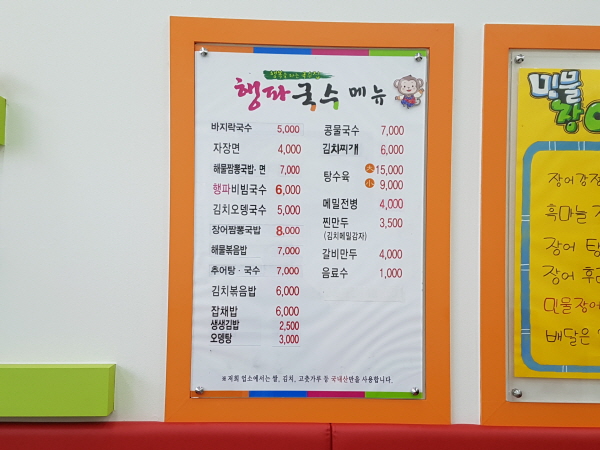 행파국수 메뉴
바지락국수 5,000
자장면 4,000
해물짬뽕국밥·면 7,000
행파비빔국수 6,000
김치오뎅국수 5,000
장어짬뽕국밥 8,000
해물볶음밥 7,000
추어탕·국수 7,000
김치볶음밥 6,000
잡채밥 6,000
생생김밥 2,500
오뎅탕 3,000
콩물국수 7,000
김치찌개 6,000
탕수육 大 15,000
小 9,000
메밀전병 4,000
찐만두 3,500
(김치메밀감자)
갈비만두 4,000
음료수 1,000
※저희 업소에서는 쌀, 김치, 고춧가루 등 국내산만을 사용합니다.
민물
장어
장어강정
흑마늘
장어 탕
장어 후
민물장어
배달은